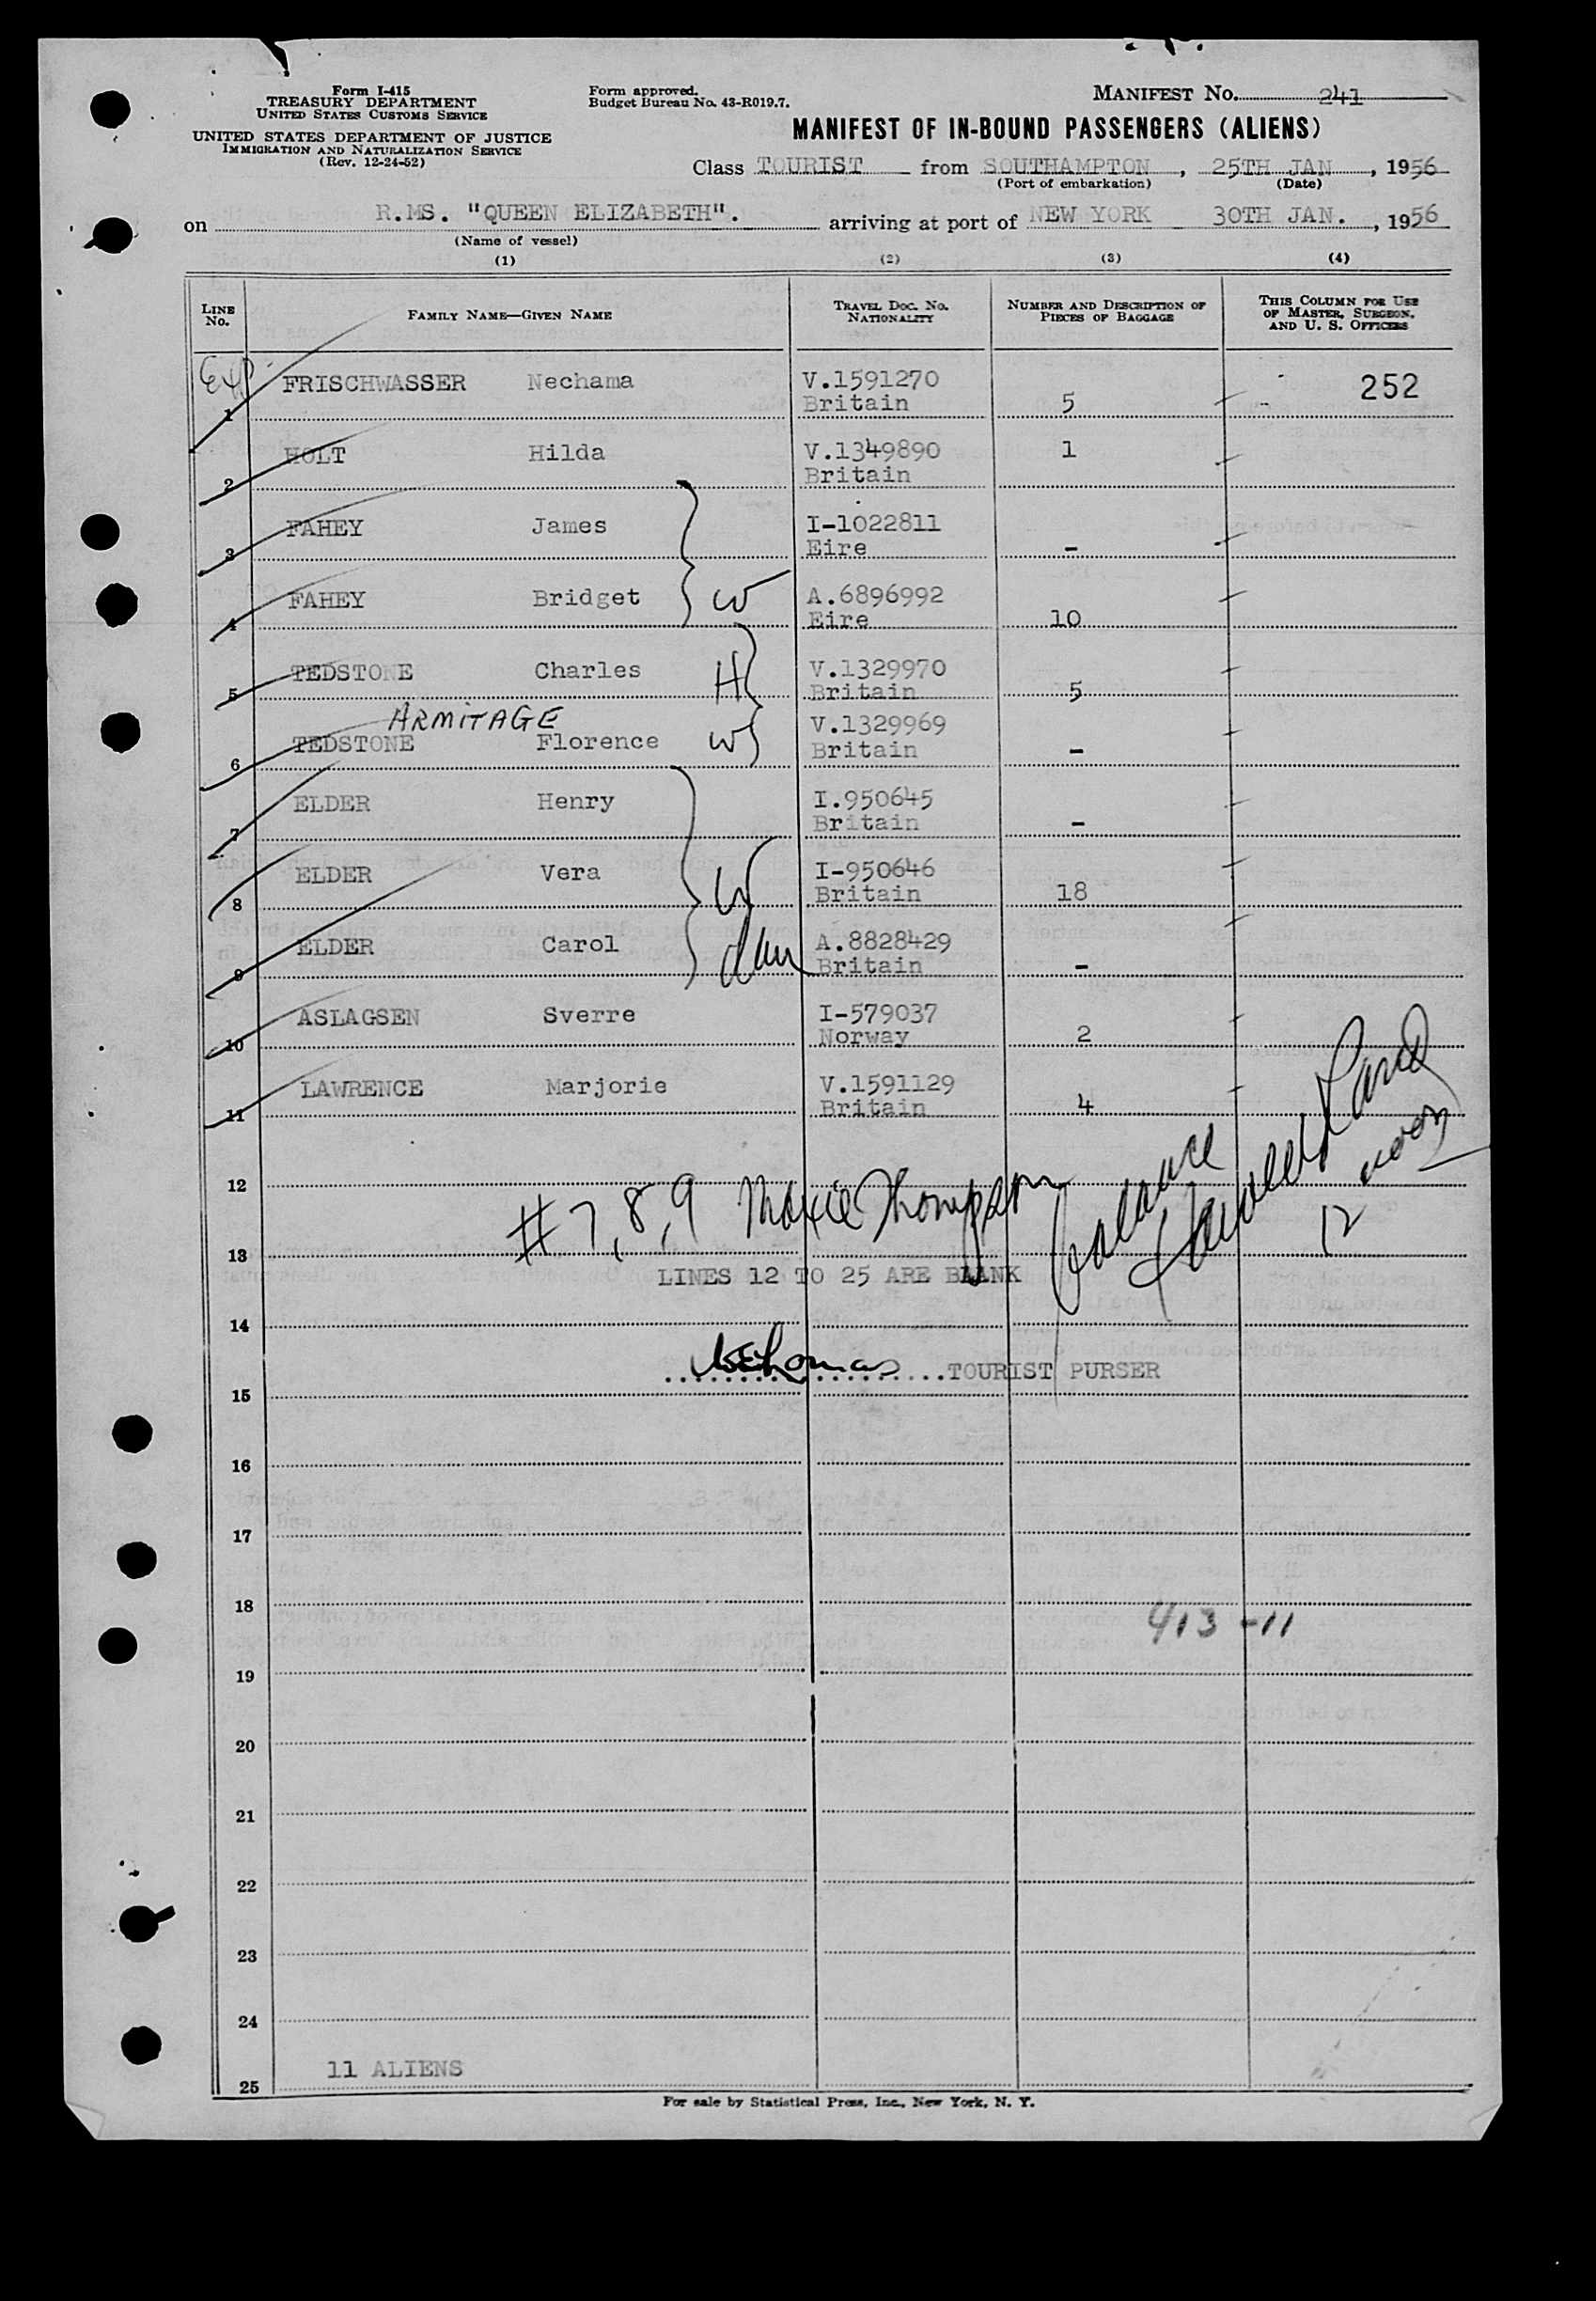 Form I-415
TREASURY DEPARTMENT
UNITED STATES CUSTOMS SERVICE
UNITED STATES DEPARTMENT OF JUSTICE
IMMIGRATION AND NATURALIZATION SERVICE
(Rev. 12-24-52)
Form approved.
Budget Bureau No. 43-R019.7.
MANIFEST No. 241
MANIFEST OF IN-BOUND PASSENGERS (ALIENS)
Class TOURIST from SOUTHAMPTON, 25TH JAN, 1956
(Port of embarkation) (Date)
on R.MS. "QUEEN ELIZABETH". arriving at port of NEW YORK 30TH JAN., 1956
(Name of vessel)
(1) (2) (3) (4)
LINE No. FAMILY NAME—GIVEN NAME TRAVEL DOC. No. NATIONALITY NUMBER AND DESCRIPTION OF PIECES OF BAGGAGE THIS COLUMN FOR USE OF MASTER, SURGEON, AND U. S. OFFICERS
Exp.
1 FRISCHWASSER Nechama V.1591270 Britain 5 252
2 HOLT Hilda V.1349890 Britain 1
3 FAHEY James I-1022811 Eire -
4 FAHEY Bridget W A.6896992 Eire 10
5 TEDSTONE Charles H V.1329970 Britain 5
ARMITAGE
6 TEDSTONE Florence W V.1329969 Britain -
7 ELDER Henry I.950645 Britain -
8 ELDER Vera W I-950646 Britain 18
9 ELDER Carol dau A.8828429 Britain -
10 ASLAGSEN Sverre I-579037 Norway 2
11 LAWRENCE Marjorie V.1591129 Britain 4
12
# 7, 8, 9 Maxie Thompson
balance
12 noon
13
LINES 12 TO 25 ARE BLANK
14
....................TOURIST PURSER
15
16
17
18
413 -11
19
20
21
22
23
24
11 ALIENS
25
For sale by Statistical Press, Inc., New York, N. Y.